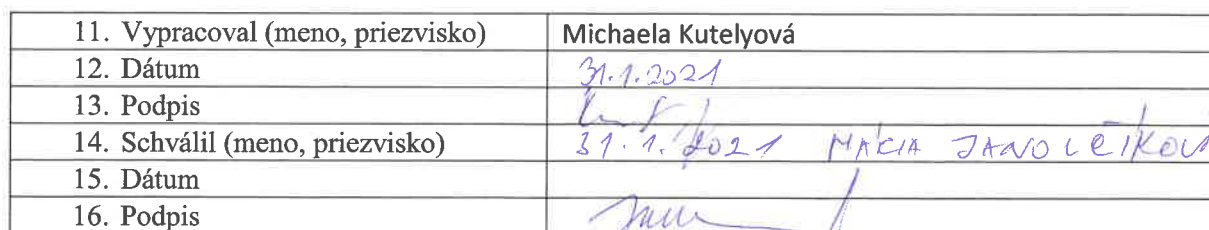 11. Vypracoval (meno, priezvisko) Michaela Kutelyová
12. Dátum 31.1.2021
13. Podpis
14. Schválil (meno, priezvisko) 31.1.2021 MÁRIA
15. Dátum
16. Podpis